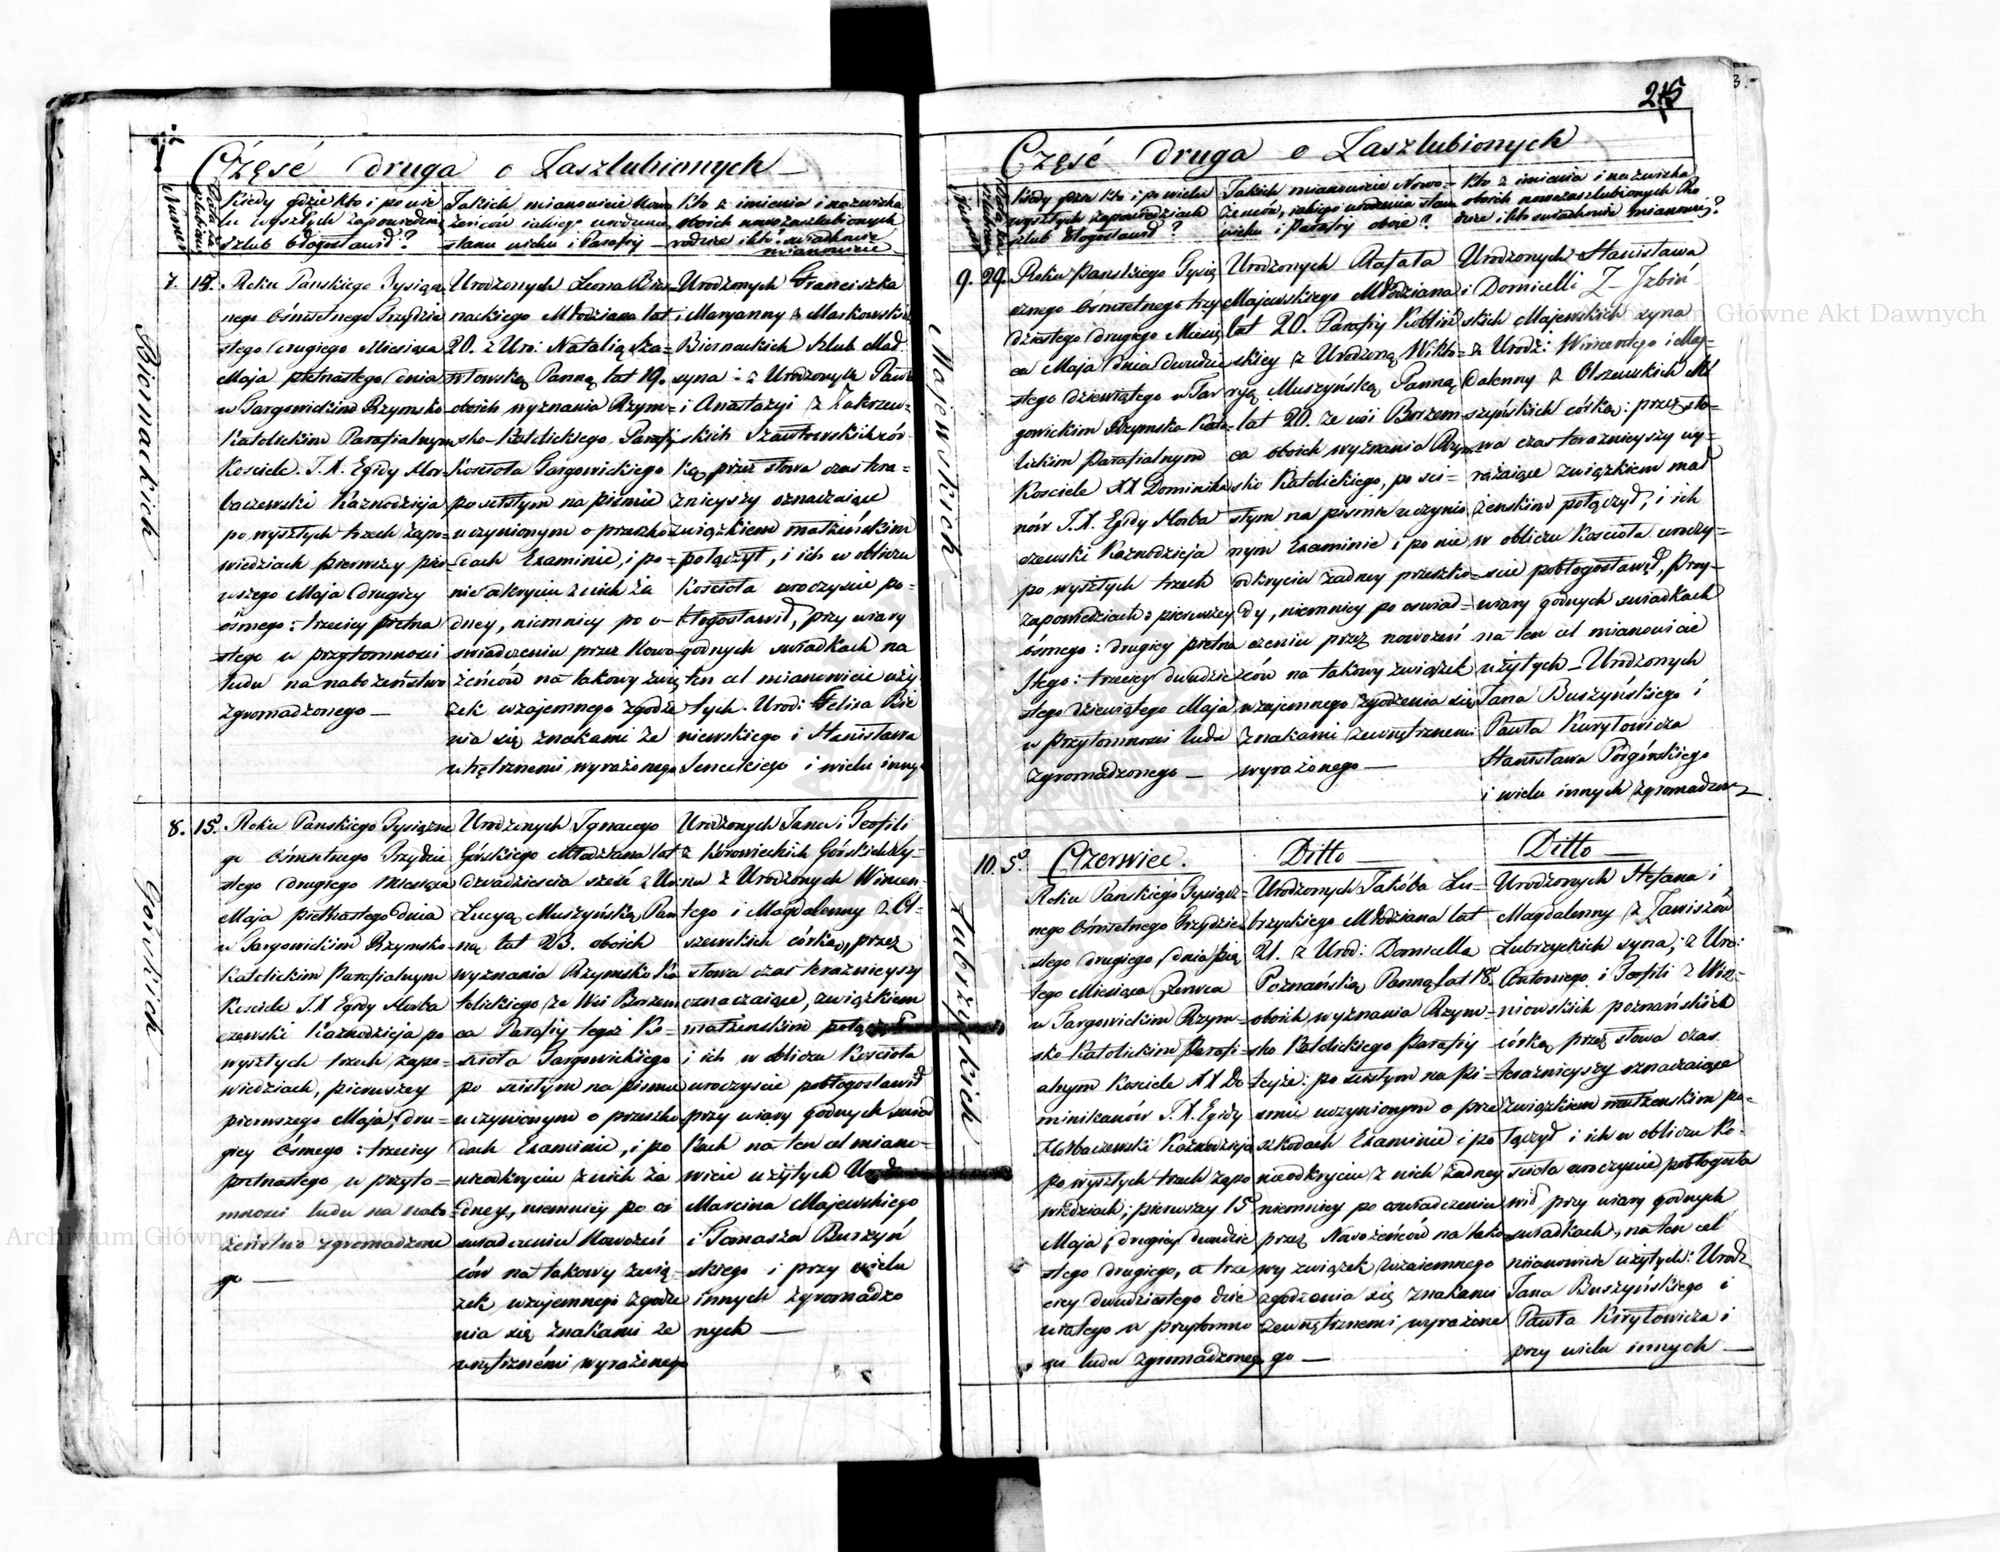 Część druga o Zaszlubionych
Numer
Data zaszlubienia
Kiedy gdzie kto i po wie
lu wyszłych zapowiedziach
szlub błogosławił?
Jakich mianowicie Nowo
żeńców jakiego urodzenia
stanu wieku i Parafij
Kto z imienia i nazwiska
obóich nowozaszlubionych
rodzice i kto świadkowie
mianowicie
7. 15.
Biernackich
Roku Panskiego Tysiącz
nego Ośmsetnego Trzydzie
stego drugiego Miesiąca
Maja piętnastego dnia
w Targowickim Rzymsko
Katolickim Parafialnym
Kosciele J.X. Egidy Hor
baczewski Kaznodzieja
po wyszłych trzech zapo=
wiedziach pierwszy pier
wszego Maja drugiey
ósmego: trzeciey pietna
stego w przytomnosci
ludu na nabożeństwo
zgromadzonego —
Urodzonych Leona Bier=
nackiego Młodziana lat
20. z Uro: Natalią Sza=
włowską Panną lat 19.
obóich wyznania Rzym=
sko-Katolickiego Parafij
Kościoła Targowickiego
po scisłym na piśmie
uczynionym o przeszko
dach Examinie, i po=
nieodkryciu z nich ża
dney, niemniey po o=
swiadczeniu przez Nowo
żeńców na takowy zwią
zek wzajemnego zgodze
nia się znakami ze
wnętrznemi wyrażonego
Urodzonych Franciszka
i Maryanny z Markowskich
Biernackich szlub. Mał.
syna: z Urodzonych Pawła
i Anastazyi z Zakrzew=
skich Szawłowskich cór
ką przez słowa czas tera=
znieyszy oznaczaiące
związkiem małżeńskim
połączył, i ich w obliczu
Kościoła uroczyscie po=
błogosławił, przy wiary
godnych swiadkach na
ten cel mianowicie uży
tych. Urod: Felixa Bie
niewskiego i Stanisława
Senickiego i wielu innych
8. 15.
Górskich
Roku Panskiego Tysiączne
go Ośmsetnego Trzydzie
stego drugiego Miesiąca
Maja piętnastego dnia
w Targowickim Rzymsko=
Katolickim Parafialnym
Kosciele J.X Egidy Horba
czewski Kaznodzieja po
wyszłych trzech zapo
wiedziach, pierwszey
pierwszego Maja, dru=
giey ósmego: trzeciey
pietnastego w przyto=
mnosci ludu na nabo
żeństwo zgromadzone
go —
Urodzonych Ignacego
Górskiego Młodziana lat
dwadzieścia sześć z Uro:
Lucyą Muszyńską Pan
ną lat 23. obóich
wyznania Rzymsko Ka
tolickiego ze Wsi Borzem
ca Parafij tegoż Ko=
scioła Targowickiego
po scisłym na pismie
uczynionym o przeszko
dach Examinie, i po
nieodkryciu z nich ża
dney, niemniey po oś
wiadczeniu Nowożeń
ców na takowy zwią
zek wzajemnego zgodze
nia się znakami ze
wnętrznémi wyrażonego
Urodzonych Jana i Teofili
z Korowieckich Górskich Sy=
na z Urodzonych Wincen=
tego i Magdalenny z Ol=
szewskich córką, przez
słowa czas teraznieyszy
oznaczaiące, związkiem
małżenskim połączył
i ich w obliczu Kościoła
uroczyscie pobłogosławił
przy wiary godnych swiad
kach na ten cel miano=
wicie użytych Urodz
Marcina Majewskiego
i Tomasza Buszyń
skiego i przy wielu
innych zgromadzo
nych —
3.
215
Część druga o Zaszlubionych
Kiedy gdzie kto i po wielu
wyszłych zapowiedziach
szlub błogosławił?
Jakich mianowicie Nowo=
żeńców, jakiego urodzenia stanu
wieku i Parafij oboie?
Kto z imienia i nazwiska
obóich nowozaszlubionych Ro
dzice i kto swiadkowie mianowicie?
9. 29.
Majewskich
Roku Panskiego Tysią
cznego Ośmsetnego trzy
dziestego drugiego Miesią
ca Maja dnia dwudzie
stego dziewiątego w Tar
gowickim Rzymsko Kato=
lickim Parafialnym
Kosciele XX Dominika
nów J.X. Egidy Horba
czewski Kaznodzieja
po wyszłych trzech
zapowiedziach: pierwszey
ósmego: drugiey pietna
stego: trzeciey dwudzie
stego dziewiątego Maja
w przytomnosci ludu
zgromadzonego —
Urodzonych Rafała
Majewskiego Młodziana
lat 20. Parafij Kobliń
skiey z Urodzoną Wikto=
ryą Muszyńską Panną
lat 20. ze wsi Borzem
ca obóich wyznania Rzym
sko Katolickiego, po sci=
słym na pismie uczynio
nym Examinie i po nie
odkryciu żadney przeszko=
dy, niemniey po oswiad=
czeniu przez nowożeń
ców na takowy związek
wzajemnego zgodzenia się
znakami zewnętrznemi
wyrażonego —
Urodzonych Stanisława
i Domicelli Z— Izbiń
skich Majewskich syna
z Urodz: Wincentego i Mag=
dalenny z Olszewskich Mu
szyńskich córką: przez sło=
wa czas teraznieyszy wy=
rażaiące związkiem mał
żenskim połączył, i ich
w obliczu Kościoła uroczy=
scie pobłogosławił, Przy=
wiary godnych swiadkach
na ten cel mianowicie
użytych — Urodzonych
Jana Buszyńskiego i
Pawła Kuryłowicza
Stanisława Podgórskiego
i wielu innych zgromadzon
10. 5.
Lubrzyckich
Czerwiec.
Roku Panskiego Tysiącz=
nego Ośmsetnego Trzydzie
stego drugiego, dnia pią
tego Miesiąca Czerwca
w Targowickim Rzym=
sko Katolickim Parafi=
alnym Kosciele XX Do
minikanów J.X. Egidy
Horbaczewski Kaznodzieja
po wyszłych trzech zapo
wiedziach; pierwszey 15
Maja, drugiey dwudzie
stego drugiego, a trze
ciey dwudziestego dzie
wiątego w przytomno
sci ludu zgromadzonego
Ditto —
Urodzonych Jakóba Lu=
brzyckiego Młodziana lat
21. z Urod: Domicella
Poznańską Panną lat 18.
obóich wyznania Rzym=
sko Katolickiego Parafij
teyże: po scisłym na pi=
smie uczynionym o prze
szkodach Examinie i po
nieodkryciu z nich żadney
niemniey po oswiadczeniu
przez Nowożeńców na tako
wy związek wzajemnego
zgodzenia się znakami
zewnętrznemi wyrażone
go —
Ditto —
Urodzonych Stefana i
Magdalenny z Zawiszów
Lubrzyckich syna, z Uro:
Antoniego i Teofili z Wisz=
niowskich poznańskich
córką przez słowa czas
teraznieyszy oznaczaiące
związkiem małżenskim po=
łączył i ich w obliczu Ko=
scioła uroczyscie pobłogosła
wił przy wiary godnych
swiadkach, na ten cel
mianowicie użytych: Urodz
Jana Buszyńskiego i
Pawła Kiryłowicza i
przy wielu innych —
Archiwum Główne Akt Dawnych
Archiwum Główne Akt Dawnych